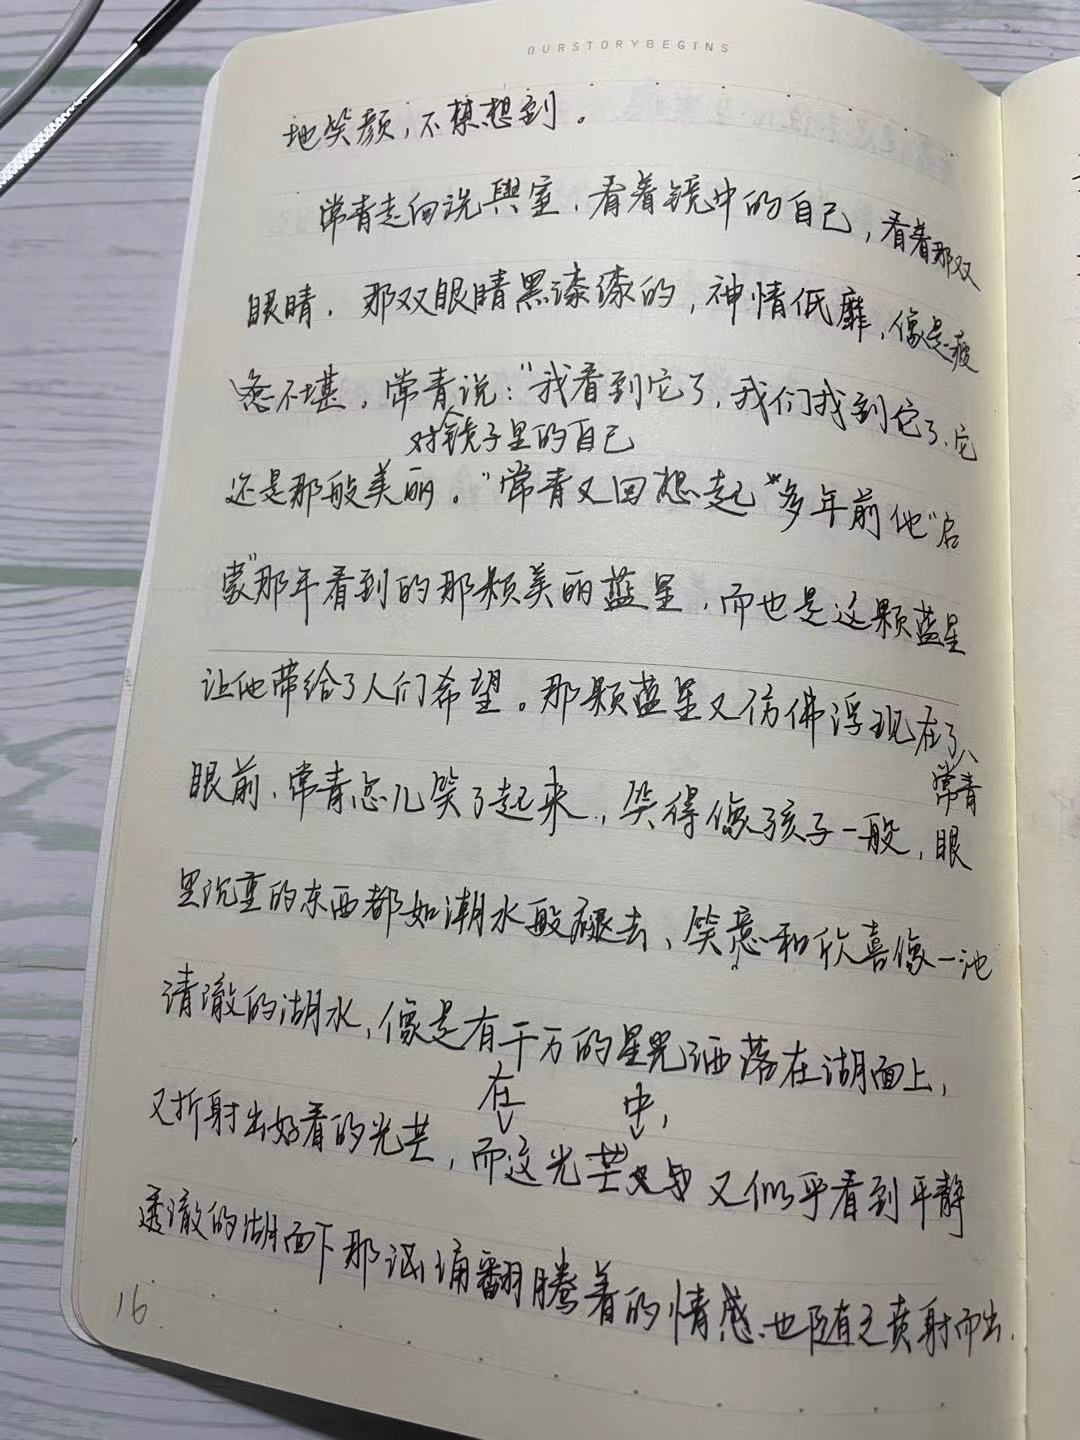 OURSTORYBEGINS
地笑颜，不想到。
常青走向洗舆室，看着镜中的自己，看着那双
眼睛，那双眼睛黑漆漆的，神情低靡，像是疲
惫不堪，常青说："我看到它了，我们找到它了，它
对镜子里的自己
还是那般美丽。"常青又回想起多年前他"启
蒙"那年看到的那颗美丽蓝星，而也是这颗蓝星
让他带给了人们希望。那颗蓝星又仿佛浮现在了
常青
眼前，常青忽儿笑了起来，笑得像孩子一般，眼
里沉重的东西都如潮水般褪去，笑意和欣喜像一池
清澈的湖水，像是有千万的星光洒落在湖面上，
在 中，
又折射出好看的光芒，而这光芒又似乎看到平静
透澈的湖面下那汹涌翻腾着的情感，也随之贲射而出，
16